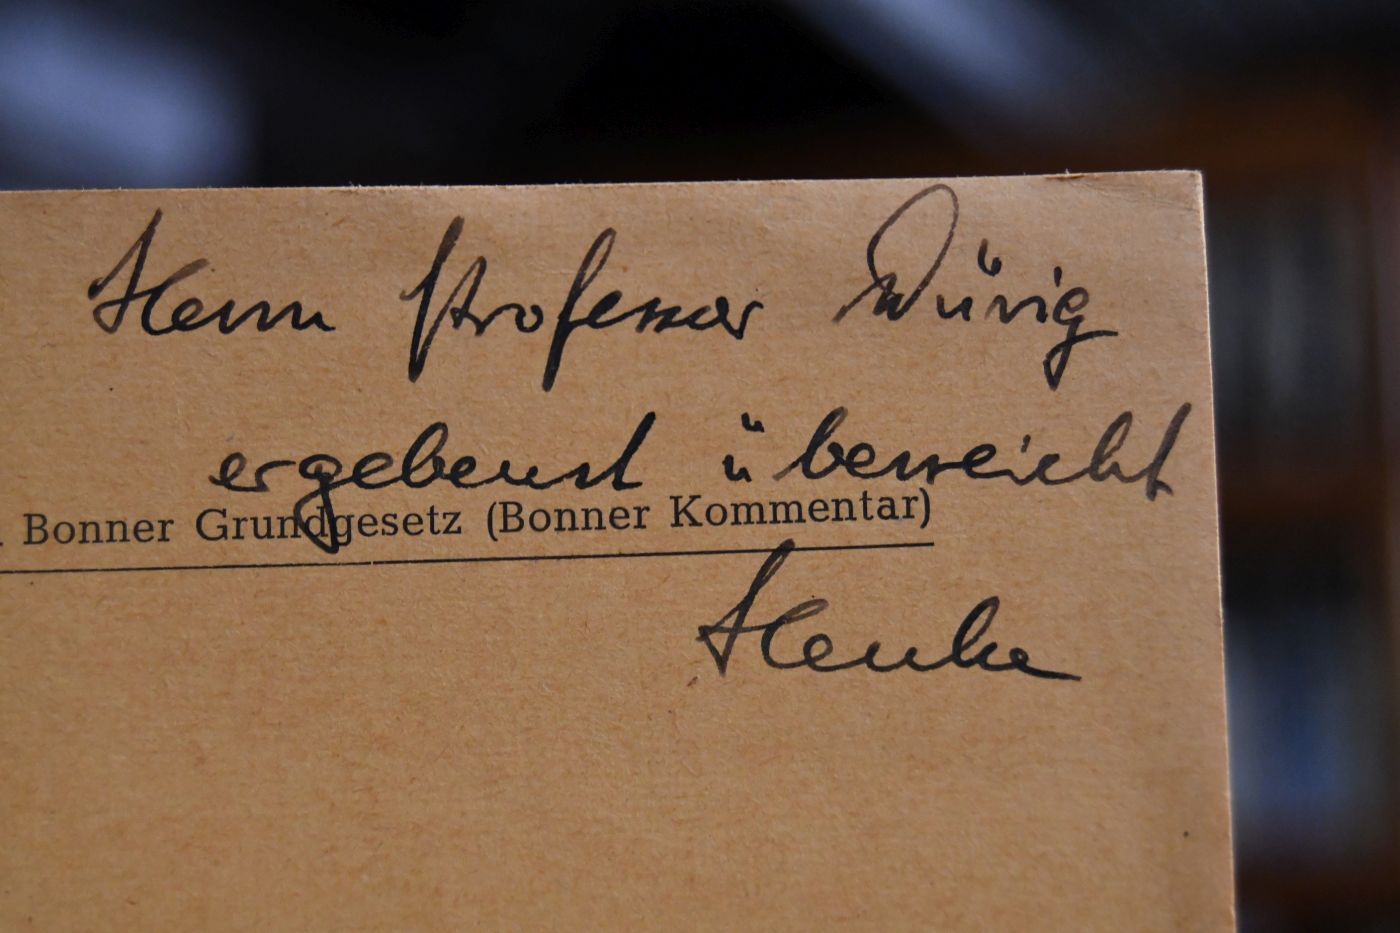 Herrn Professor Dürig
ergebenst überreicht
Bonner Grundgesetz (Bonner Kommentar)
Henke